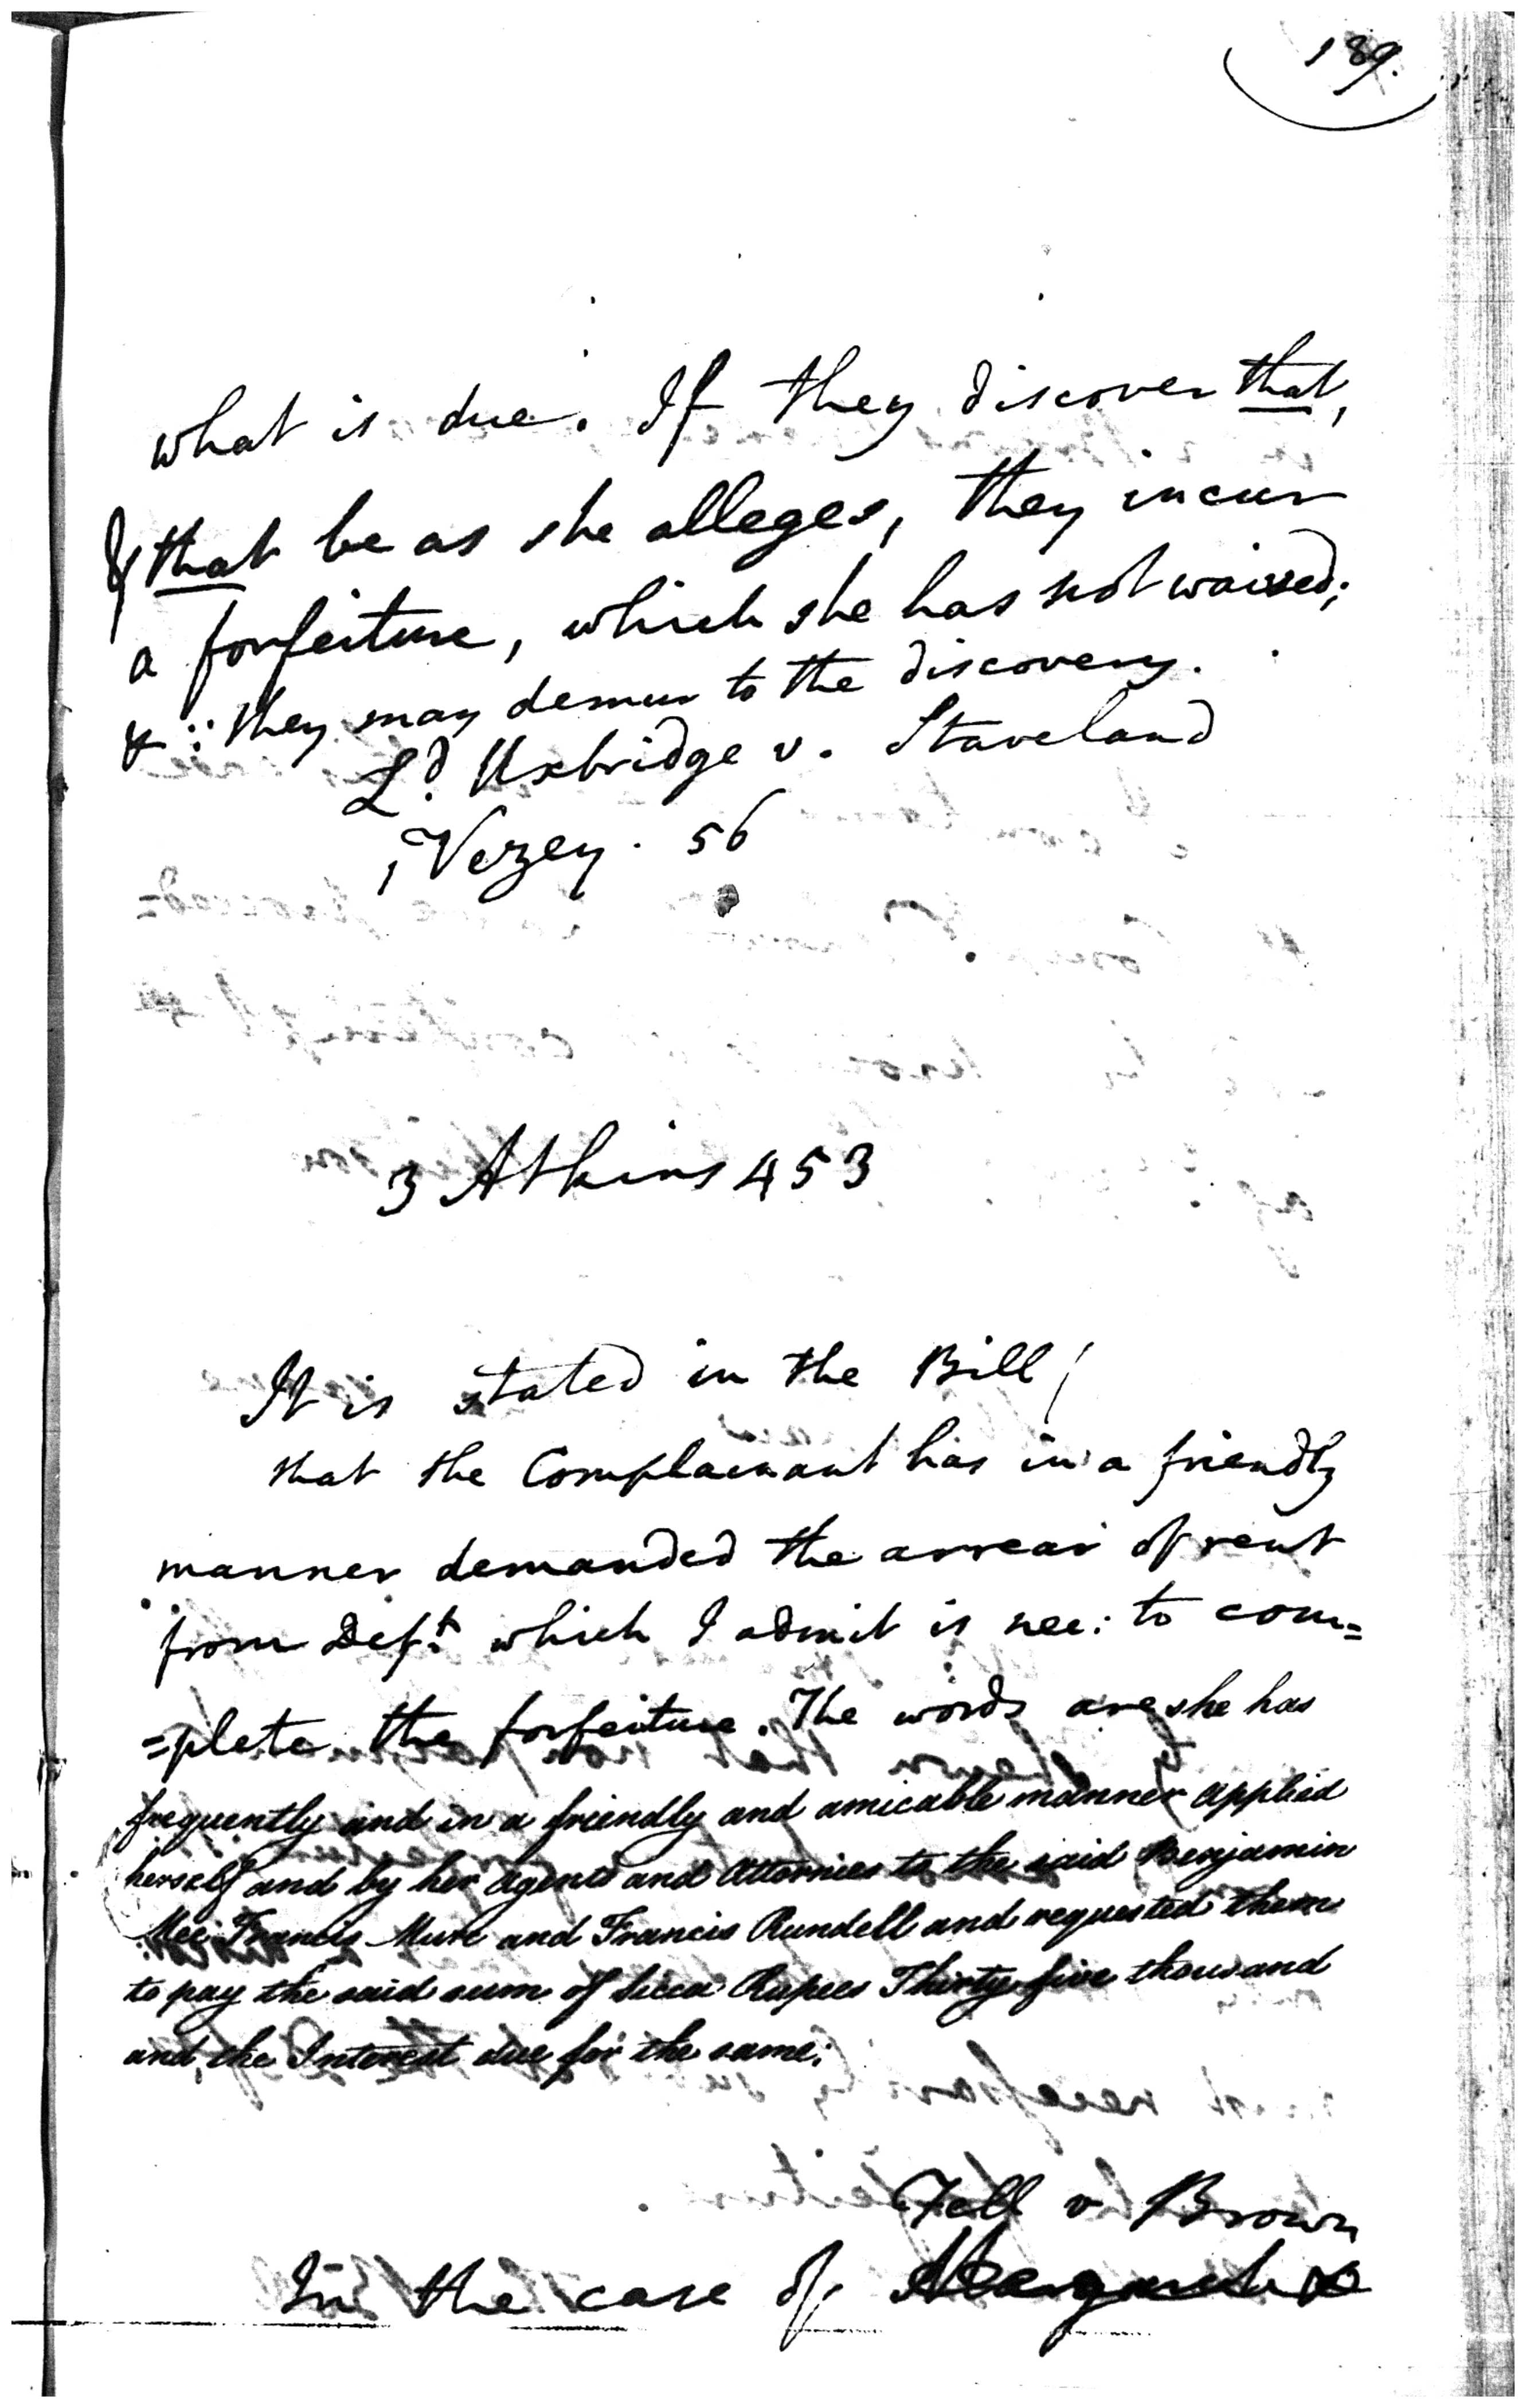 189.
what is due. If they discover that,
& that be as she alleges, they incur
a forfeiture, which she has not waived;
& ∴ they may demur to the discovery.
Ld. Uxbridge v. Staveland
1 Vezey. 56
3 Atkins 453
It is stated in the Bill /
that the Complainant has in a friendly
manner demanded the arrear of rent
from Deft. which I admit is nec: to com=
=plete the forfeiture. The words are she has
frequently and in a friendly and amicable manner applied
herself and by her Agents and Attornies to the said Benjamin
Mee Francis Mure and Francis Rundell and requested them
to pay the said sum of Sicca Rupees Thirty five thousand
and the Interest due for the same.
Fell v Brown
In the case of